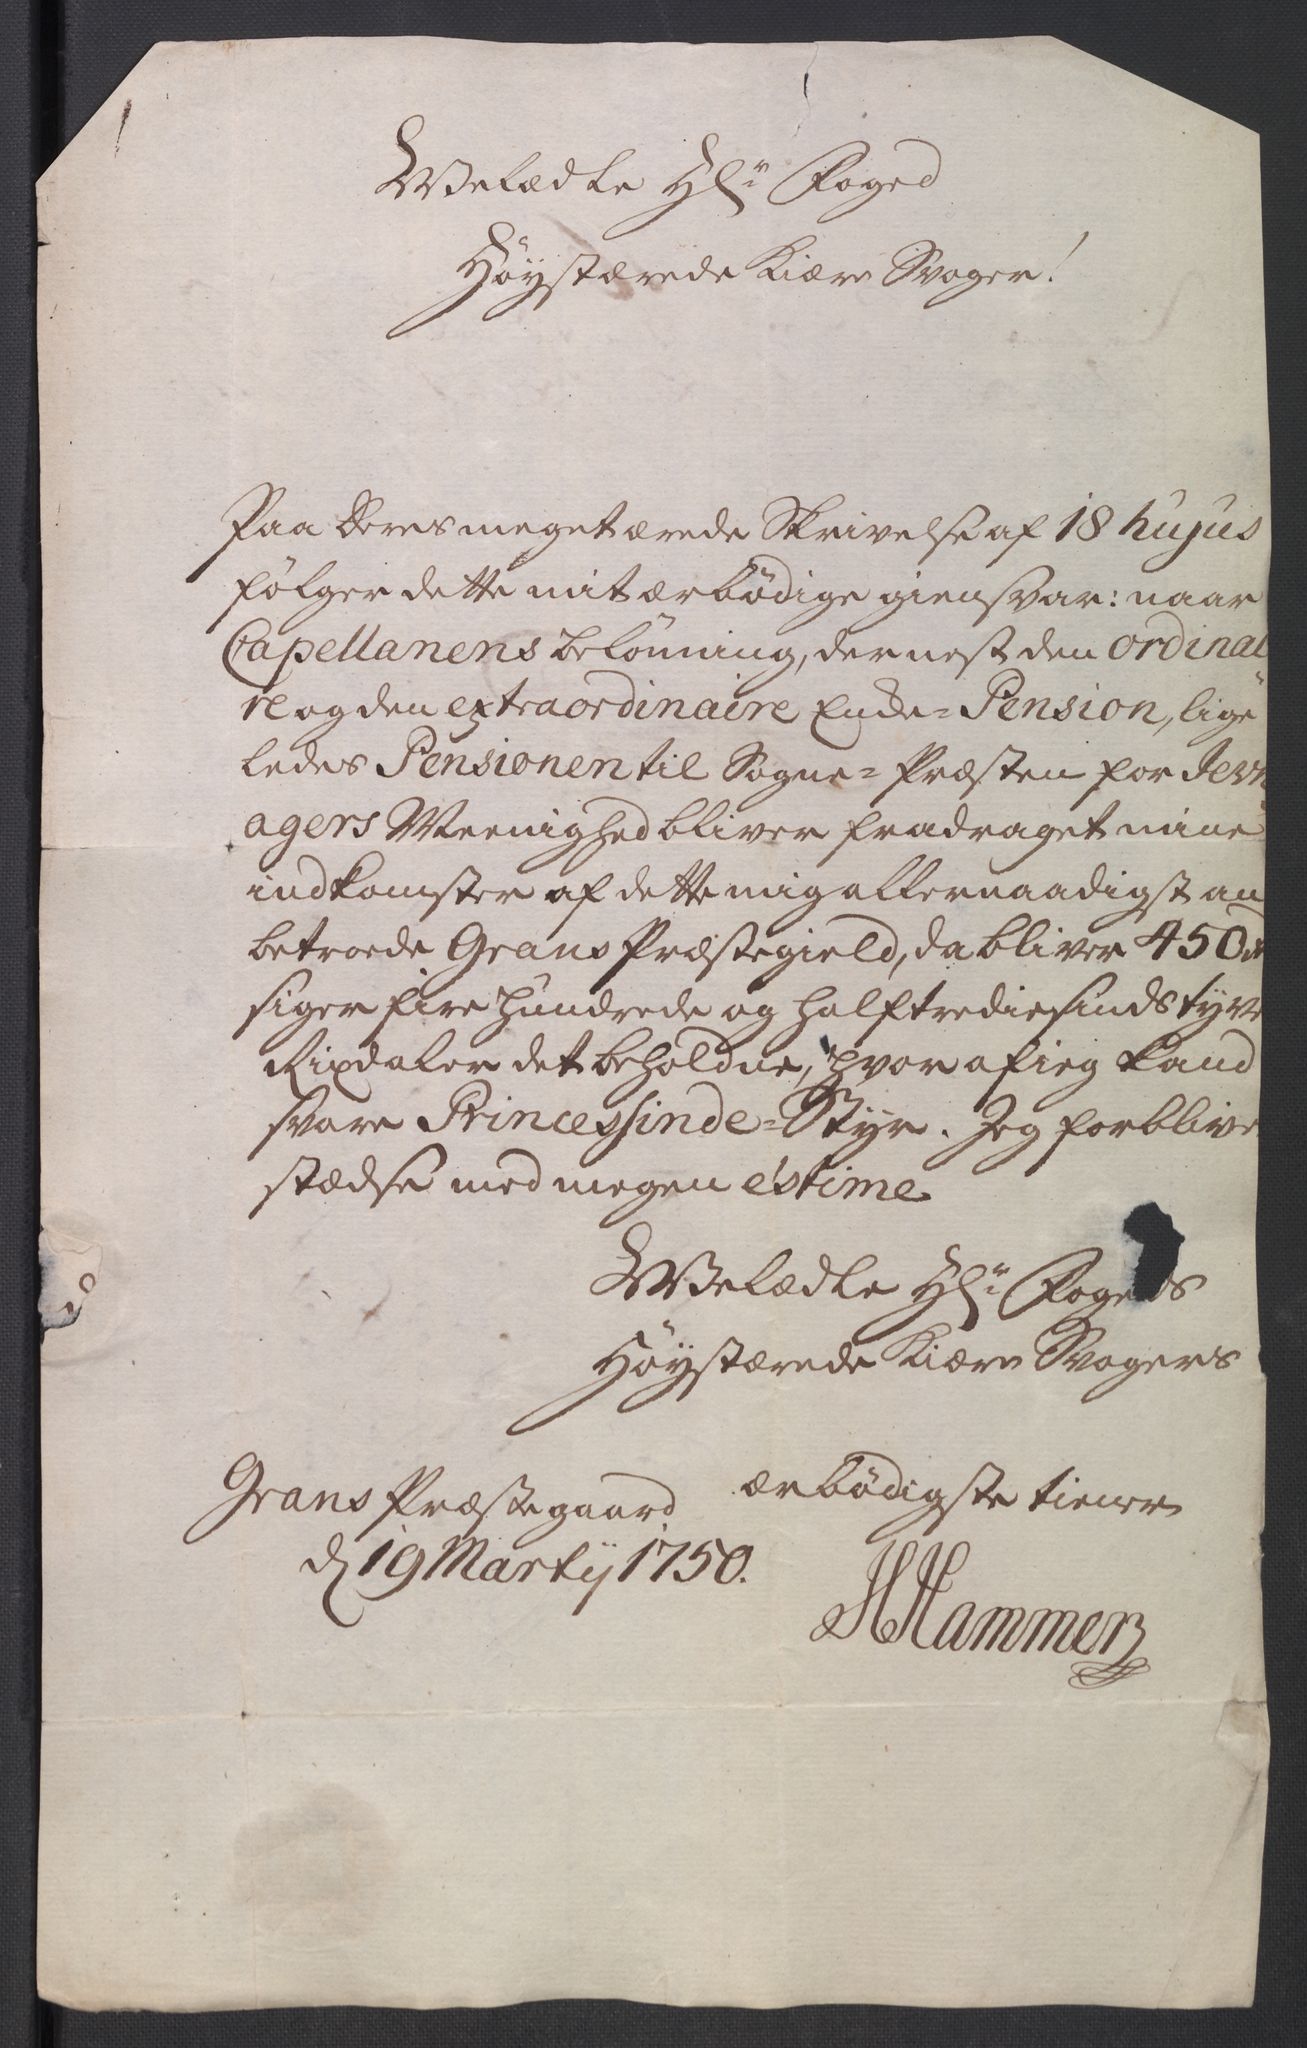 Welædle Hr. Foged
Höystærede Kiære Svoger!
Paa Deres meget ærede Skrivelse af 18 hujus
fölger dette mit ærbödige giensvar: naar
Capellanens belönning, dernest den ordinai
re og den extraordinaire Enke-Pension, lige
ledes Pensionen til Sogne-Præsten for Jevn
agers Meenighed bliver fradraget mine
indkomster af dette mig allernaadigst an
betroede Grans Præstegield, da bliver 450 rd
siger fire hundrede og halftrediesindstyve
Rixdaler det beholdne, hvoraf ieg kand
svare Princessinde-Styr. Jeg forblive
stædse med megen estime
Welædle Hr. Fogeds
Höystærede Kiære Svogers
ærbödigste tiener
Grans Præstegaard
d 19 Martij 1750.
HHammer